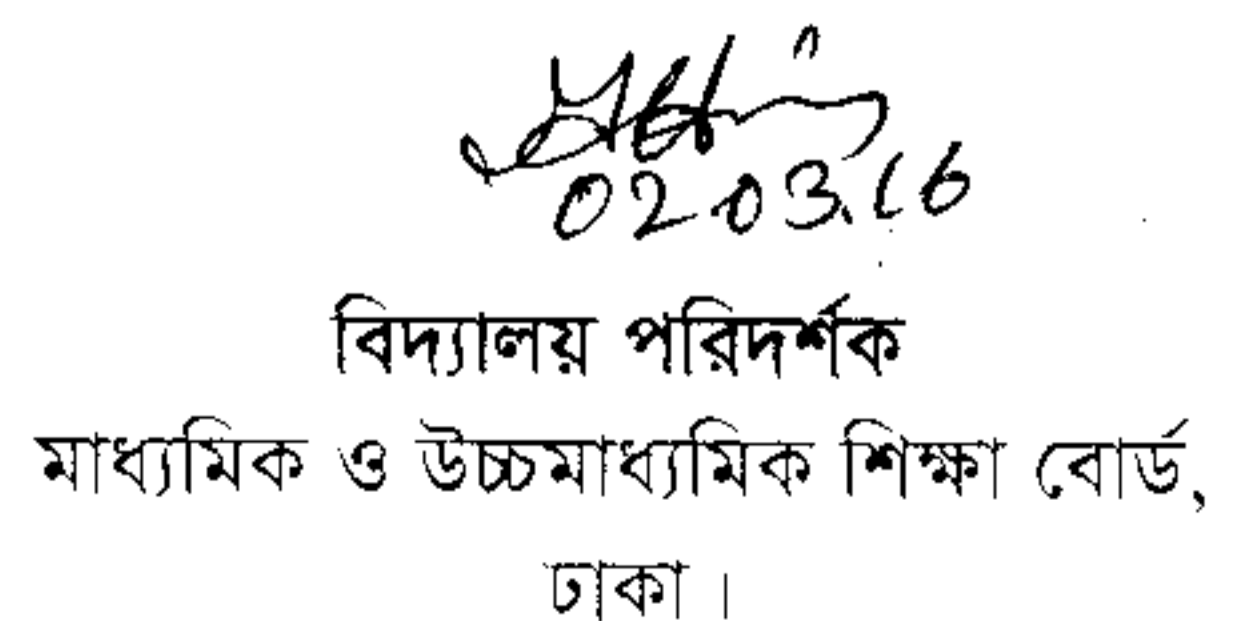 02.03.16
বিদ্যালয় পরিদর্শক
মাধ্যমিক ও উচ্চমাধ্যমিক শিক্ষা বোর্ড,
ঢাকা।